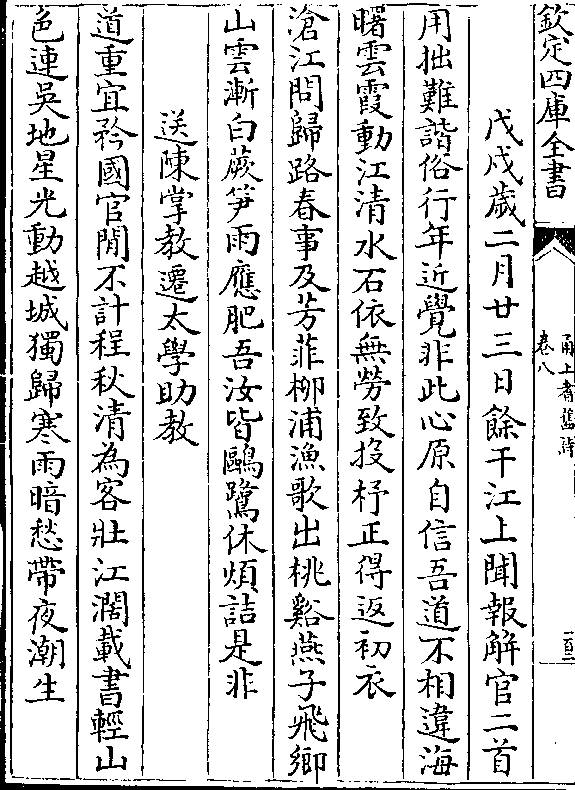 欽定四庫全書
甬上耆舊詩
卷八
戊戌歲二月廿三日餘干江上聞報解官二首
用拙難諧俗行年近覺非此心原自信吾道不相違海
曙雲霞動江清水石依無勞致投杼正得返初衣
滄江問歸路春事及芳菲柳浦漁歌出桃谿燕子飛鄉
山雲漸白蕨笋雨應肥吾汝皆鷗鷺休煩詰是非
送陳掌教遷太學助教
道重宜矜國官閒不計程秋清為客壯江濶載書輕山
色連吳地星光動越城獨歸寒雨暗愁帶夜潮生